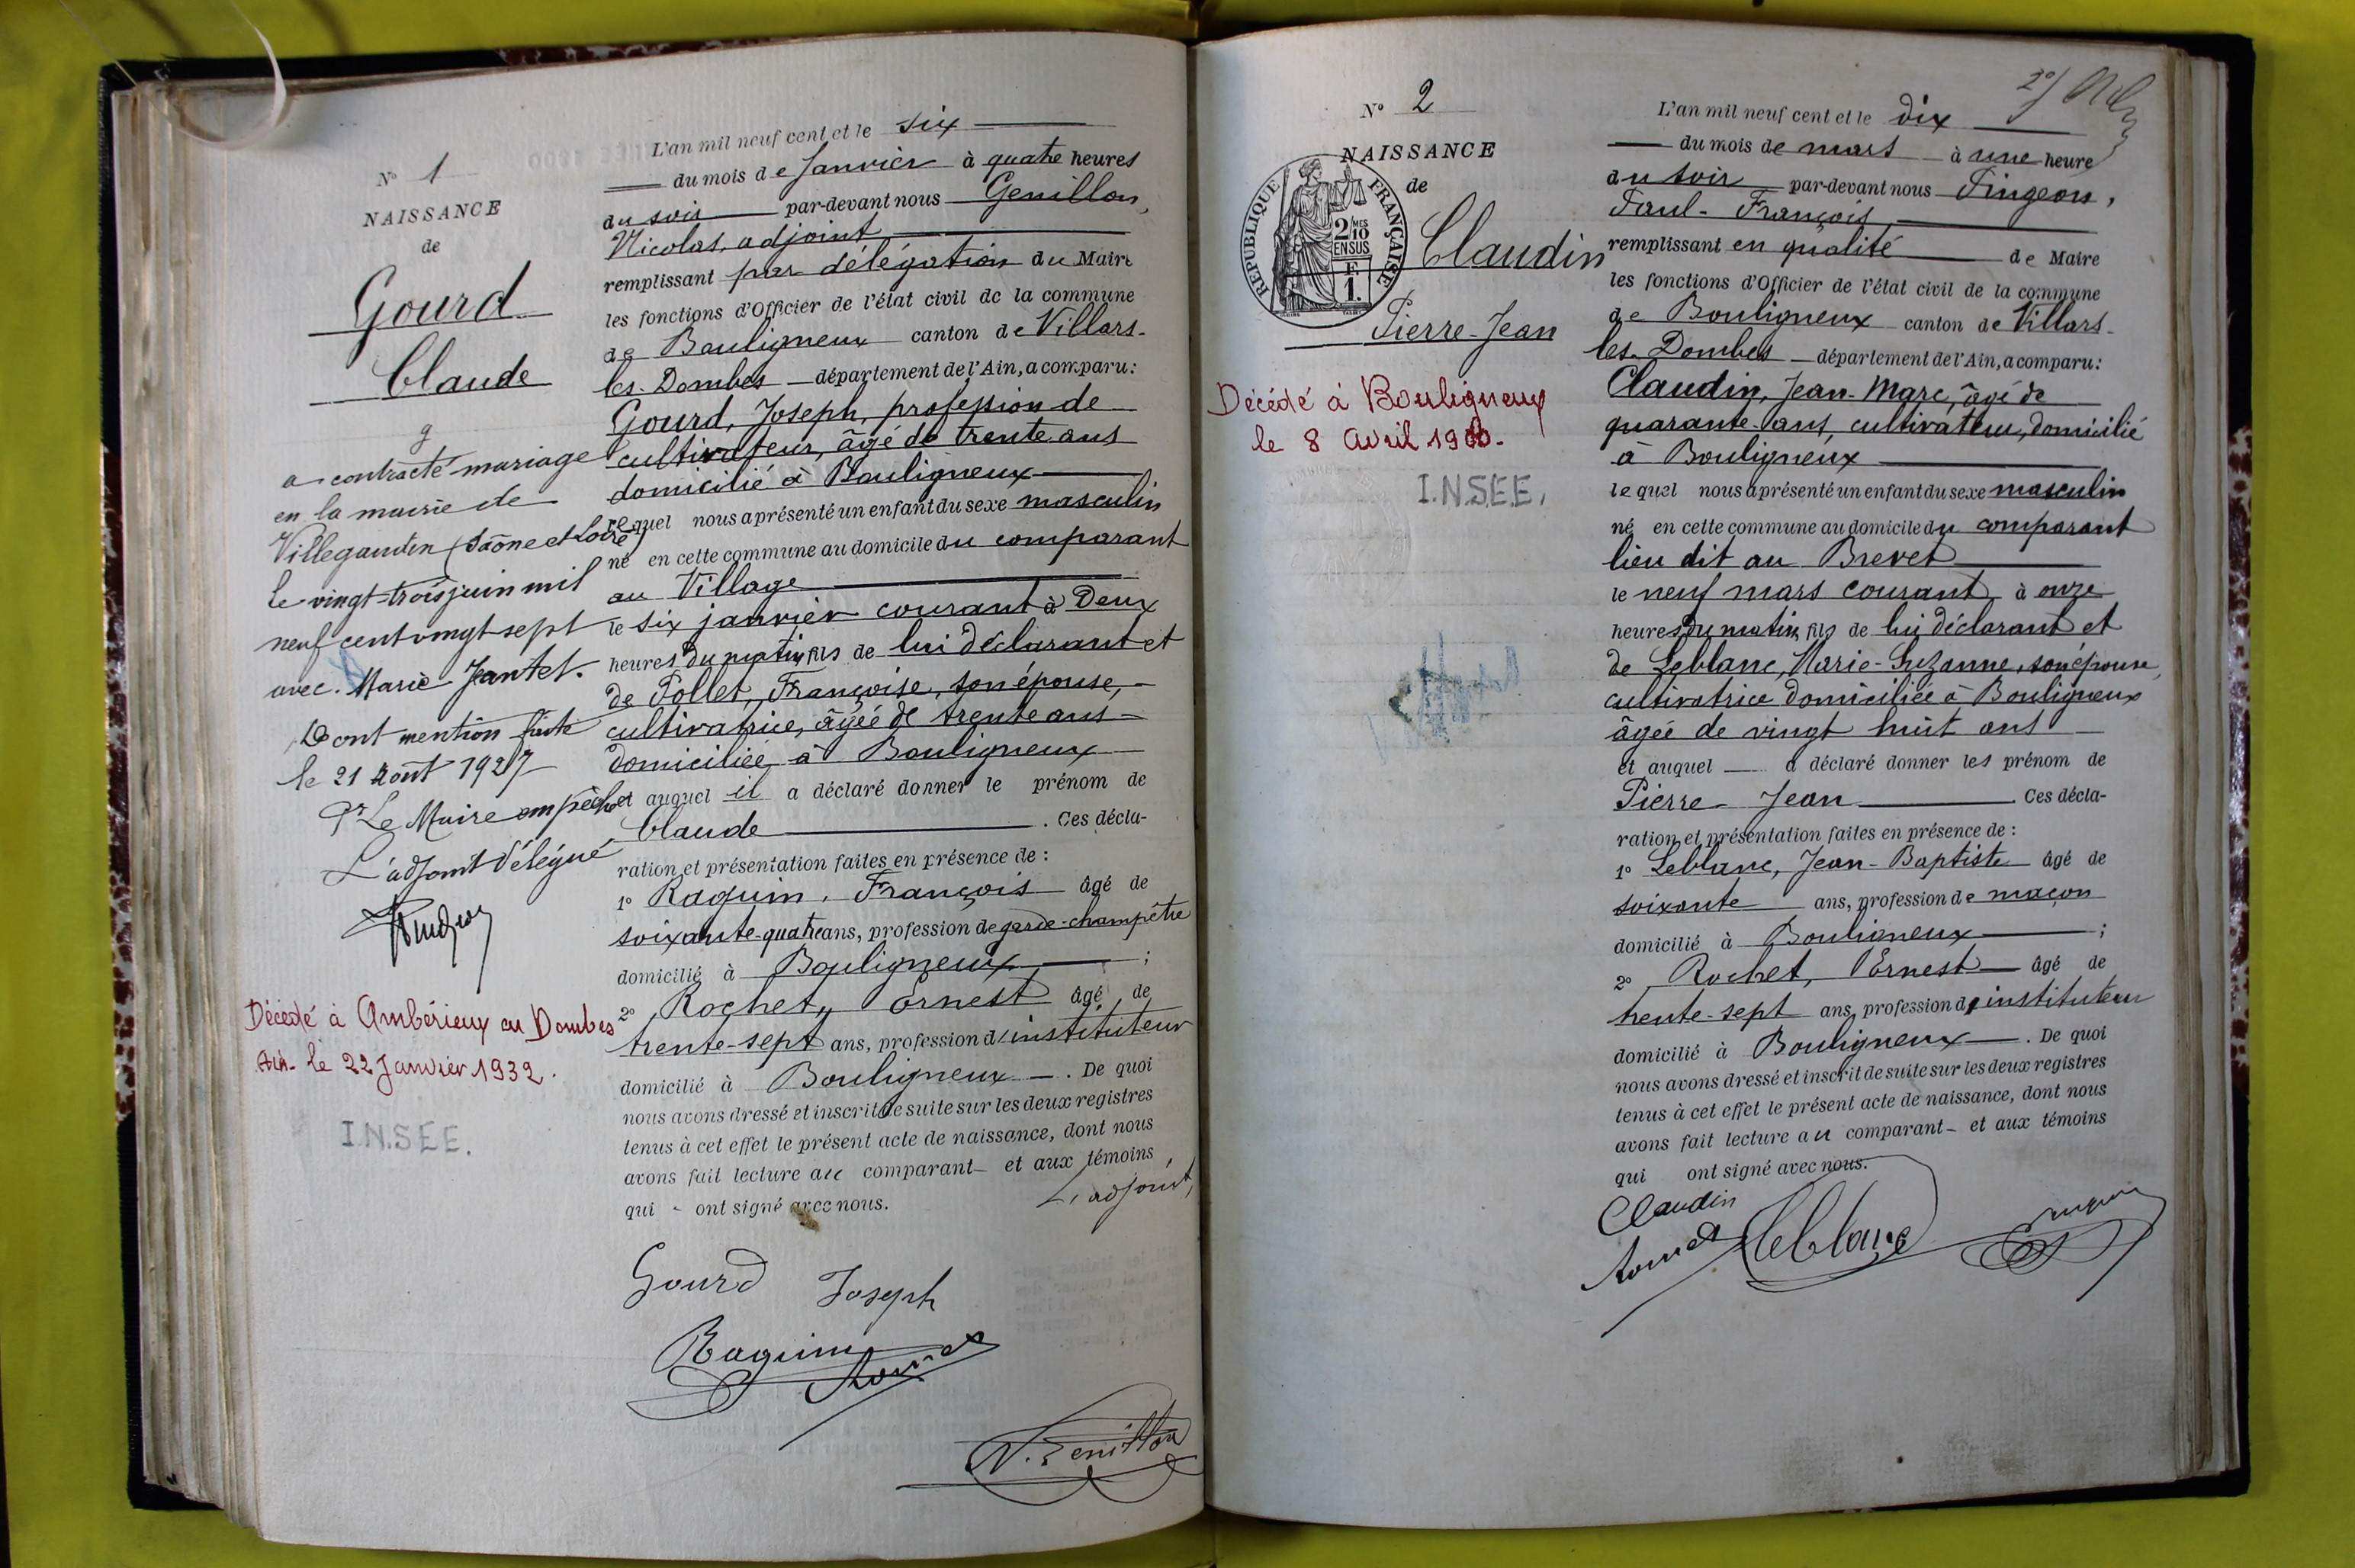 N° 1
NAISSANCE
de
Gourd
Claude
a contracté mariage
en la mairie de
Villegaudin (Saône et Loire)
le vingt-trois juin mil
neuf cent vingt sept
avec Marie Jantet.
Dont mention faite
le 21 Août 1927
Pr Le Maire empêché
L'adjoint délégué
Décédé à Ambérieux en Dombes
Ain - le 22 Janvier 1932.
I.N.S.E.E.
L'an mil neuf cent et le six
du mois de Janvier à quatre heures
du soir par-devant nous Genillon,
Nicolas, adjoint
remplissant par délégation du Maire
les fonctions d'Officier de l'état civil de la commune
de Bouligneux canton de Villars-
les-Dombes département de l'Ain, a comparu :
Gourd, Joseph, profession de
cultivateur, âgé de trente ans
domicilié à Bouligneux
lequel nous a présenté un enfant du sexe masculin
né en cette commune au domicile du comparant
au Village
le six janvier courant à Deux
heures du matin fils de lui déclarant et
de Pollet, Françoise, son épouse,
cultivatrice, âgée de trente ans
domiciliée à Bouligneux
et auquel il a déclaré donner le prénom de
Claude . Ces décla-
ration et présentation faites en présence de :
1° Raquin, François âgé de
soixante-quatre ans, profession de garde-champêtre
domicilié à Bouligneux ;
2° Rochet, Ernest âgé de
trente-sept ans, profession d'instituteur
domicilié à Bouligneux . De quoi
nous avons dressé et inscrit de suite sur les deux registres
tenus à cet effet le présent acte de naissance, dont nous
avons fait lecture au comparant et aux témoins
qui ont signé avec nous. L'adjoint,
Gourd Joseph
Raquin
Rochet
N. Genillon
N° 2
NAISSANCE
de
RÉPUBLIQUE FRANÇAISE
2 MES
10
EN SUS
F.
1.
Claudin
Pierre-Jean
Décédé à Bouligneux
le 8 Avril 1900.
I.N.S.E.E.
L'an mil neuf cent et le dix
du mois de mars à une heure
du soir par-devant nous Pingeon,
Paul-François
remplissant en qualité de Maire
les fonctions d'Officier de l'état civil de la commune
de Bouligneux canton de Villars-
les-Dombes département de l'Ain, a comparu :
Claudin, Jean-Marc, âgé de
quarante ans, cultivateur, domicilié
à Bouligneux
lequel nous a présenté un enfant du sexe masculin
né en cette commune au domicile du comparant
lieu dit au Brevet
le neuf mars courant à onze
heures du matin fils de lui déclarant et
de Leblanc, Marie-Suzanne, son épouse,
cultivatrice domiciliée à Bouligneux
âgée de vingt huit ans
et auquel a déclaré donner les prénom de
Pierre-Jean . Ces décla-
ration et présentation faites en présence de :
1° Leblanc, Jean-Baptiste âgé de
soixante ans, profession de maçon
domicilié à Bouligneux ;
2° Rochet, Ernest âgé de
trente-sept ans, profession d'instituteur
domicilié à Bouligneux . De quoi
nous avons dressé et inscrit de suite sur les deux registres
tenus à cet effet le présent acte de naissance, dont nous
avons fait lecture au comparant et aux témoins
qui ont signé avec nous.
Claudin
Rochet Leblanc Pingeon